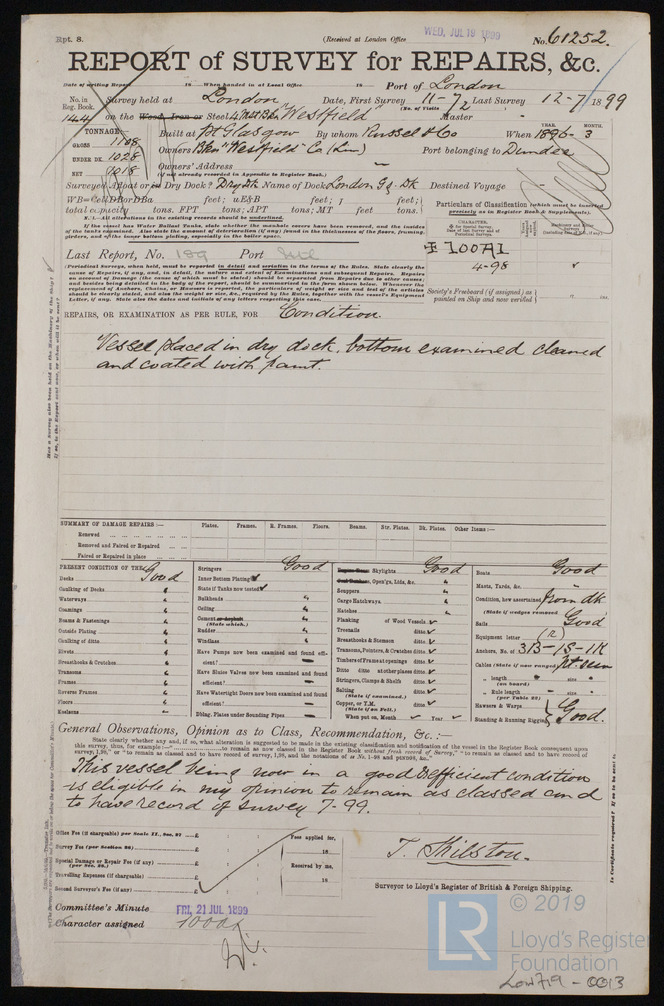 Rpt. 8.
(Received at London Office WED. JUL 19 1899 )
No. 61252.
REPORT of SURVEY for REPAIRS, &c.
Date of writing Report 18 When handed in at Local Office 18 Port of London
No. in Reg. Book. Survey held at London Date, First Survey 11-7 Last Survey 12-7 1899
(No. of Visits 2)
144 on the Wood, Iron or Steel 4 Mast Bk. "Westfield" Master
TONNAGE:—
GROSS 1108
UNDER DK. 1028
NET 1018
Built at Pt Glasgow By whom Russel & Co When 1896 - 3
YEAR. MONTH.
Owners "Westfield" Co (Lim) Port belonging to Dundee
Owners' Address
(if not already recorded in Appendix to Register Book.)
Surveyed Afloat or in Dry Dock? Dry Dk Name of Dock London Gg Dk Destined Voyage
WB=CellDBorDBa feet; uE&B feet; f feet;
total capacity tons. FPT tons; APT tons; MT feet tons.
N.B.—All alterations in the existing records should be underlined.
If the vessel has Water Ballast Tanks, state whether the manhole covers have been removed, and the insides of the tanks examined. Also state the amount of deterioration (if any) found in the thicknesses of the floors, framing, girders, and of the inner bottom plating, especially in the boiler space.
Particulars of Classification (which must be inserted precisely as in Register Book & Supplements).
CHARACTER.
✠ 100A1
4-98
Last Report, No. 189 Port
Society's Freeboard (if assigned) as painted on Ship and now verified
REPAIRS, OR EXAMINATION AS PER RULE, FOR Condition.
Vessel placed in dry dock, bottom examined cleaned
and coated with paint.
SUMMARY OF DAMAGE REPAIRS:— Plates. Frames. R. Frames. Floors. Beams. Str. Plates. Bk. Plates. Other Items:—
Renewed
Removed and Faired or Repaired
Faired or Repaired in place
PRESENT CONDITION OF THE
Decks Good
Caulking of Decks "
Waterways "
Coamings "
Beams & Fastenings "
Outside Plating "
Caulking of ditto "
Rivets "
Breasthooks & Crutches "
Transoms "
Frames "
Reverse Frames "
Floors "
Keelsons "
Stringers Good
Inner Bottom Plating
State if Tanks now tested
Bulkheads "
Ceiling "
Cement or Asphalt "
(State which.)
Rudder "
Windlass "
Have Pumps now been examined and found efficient? —
Have Sluice Valves now been examined and found efficient? —
Have Watertight Doors now been examined and found efficient? —
Dblng. Plates under Sounding Pipes —
Engine Room Skylights Good
Coal Bunkers, Open'gs, Lids, &c. "
Scuppers "
Cargo Hatchways "
Hatches "
Planking of Wood Vessels
Treenails ditto
Breasthooks & Stemson ditto
Transoms, Pointers, & Crutches ditto
Timbers of Frame at openings ditto
Ditto ditto at other places ditto
Stringers, Clamps & Shelfs ditto
Salting ditto
(State if examined.)
Copper, or Y.M. ditto
(State if on Felt.)
When put on, Month Year
Boats Good
Masts, Yards, &c. "
Condition, how ascertained from dk
(State if wedges removed)
Sails Good
Equipment letter (R)
Anchors, No. of 3B-1S-1K
Cables (State if now ranged) pt seen
" length " size
(on board)
" Rule length " size
(per Table 22)
Hawsers & Warps
Standing & Running Rigging Good.
General Observations, Opinion as to Class, Recommendation, &c.:—
This vessel being now in a good & efficient condition
is eligible in my opinion to remain as classed and
to have record of survey 7-99.
Office Fee (if chargeable) per Scale II., Sec. 27 £
Survey Fee (per Section 28) £
Special Damage or Repair Fee (if any) (per Sec. 28.) £
Travelling Expenses (if chargeable) £
Second Surveyor's Fee (if any) £
Fees applied for, 18
Received by me, 18
T. Shilston.
Surveyor to Lloyd's Register of British & Foreign Shipping.
Committee's Minute FRI. 21 JUL 1899
Character assigned 100A1
© 2019
LR
Lloyd's Register
Foundation
LOW719 - 0013